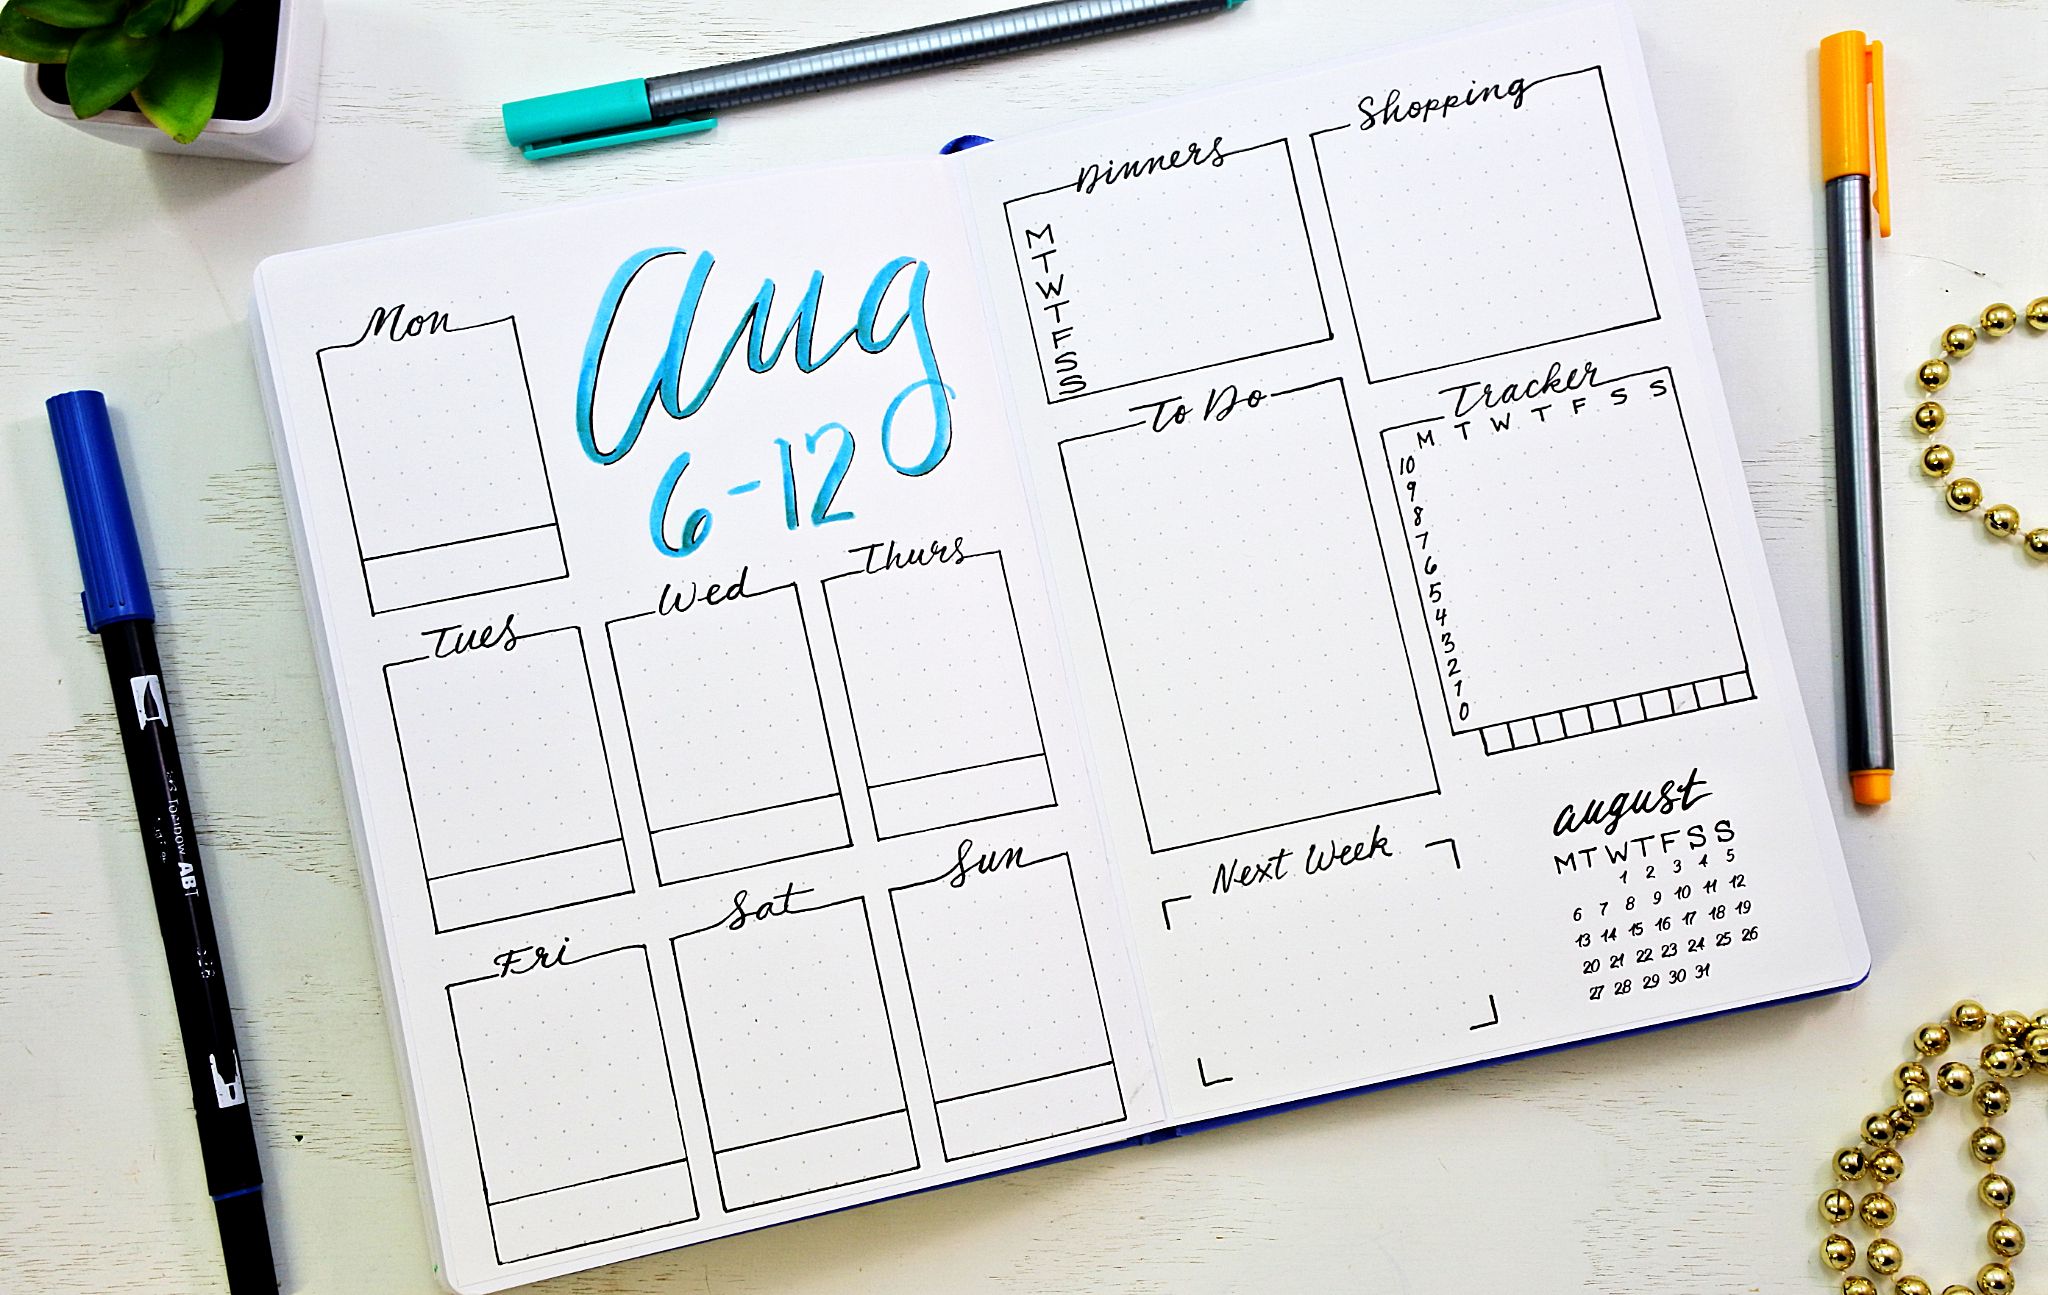 Mon
Aug
6-12
Tues
Wed
Thurs
Fri
Sat
Sun
Dinners
M
T
W
T
F
S
S
Shopping
To Do
Tracker
M T W T F S S
10
9
8
7
6
5
4
3
2
1
0
Next Week
august
M T W T F S S
1 2 3 4 5
6 7 8 9 10 11 12
13 14 15 16 17 18 19
20 21 22 23 24 25 26
27 28 29 30 31
Tombow ABT